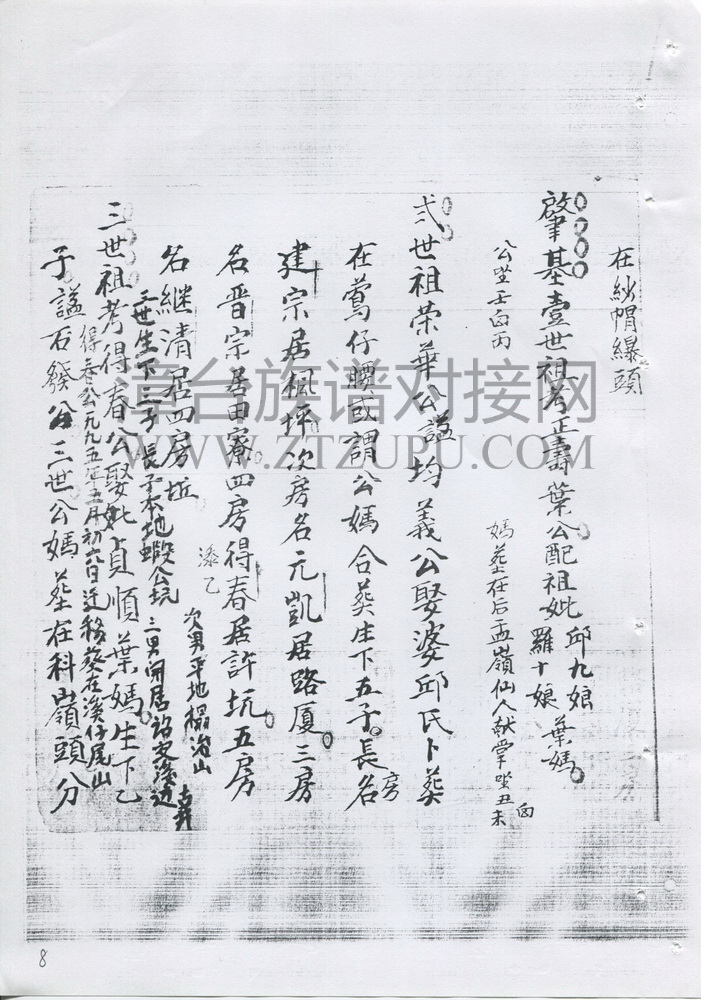 在紗帽縹頭
肇基壹世祖考正壽葉公配祖妣 邱九娘 羅十娘 葉媽
公坐壬向丙 媽塟在后孟嶺仙人献掌坐丑未向
弍世祖荣華公謚均義公娶婆邱氏卜葬
在鶯仔腰或謂公媽合葬生下五子長房名
建宗居楓坪次房名元凱居路厦三房
名晋宗居田寮四房得春居許坑五房
添乙
名継清居四房坵 次男平地榻治山
三世生下三子長子本地蝦公坑 三男開居詔安溪边
三世祖考得春公娶妣貞順葉媽生下乙
得春公一九九五年五月初六日迁移葵在溪仔尾山
子謚石發公三世公媽塟在科嶺頭分
章台族谱对接网
WWW.ZTZUPU.COM
8